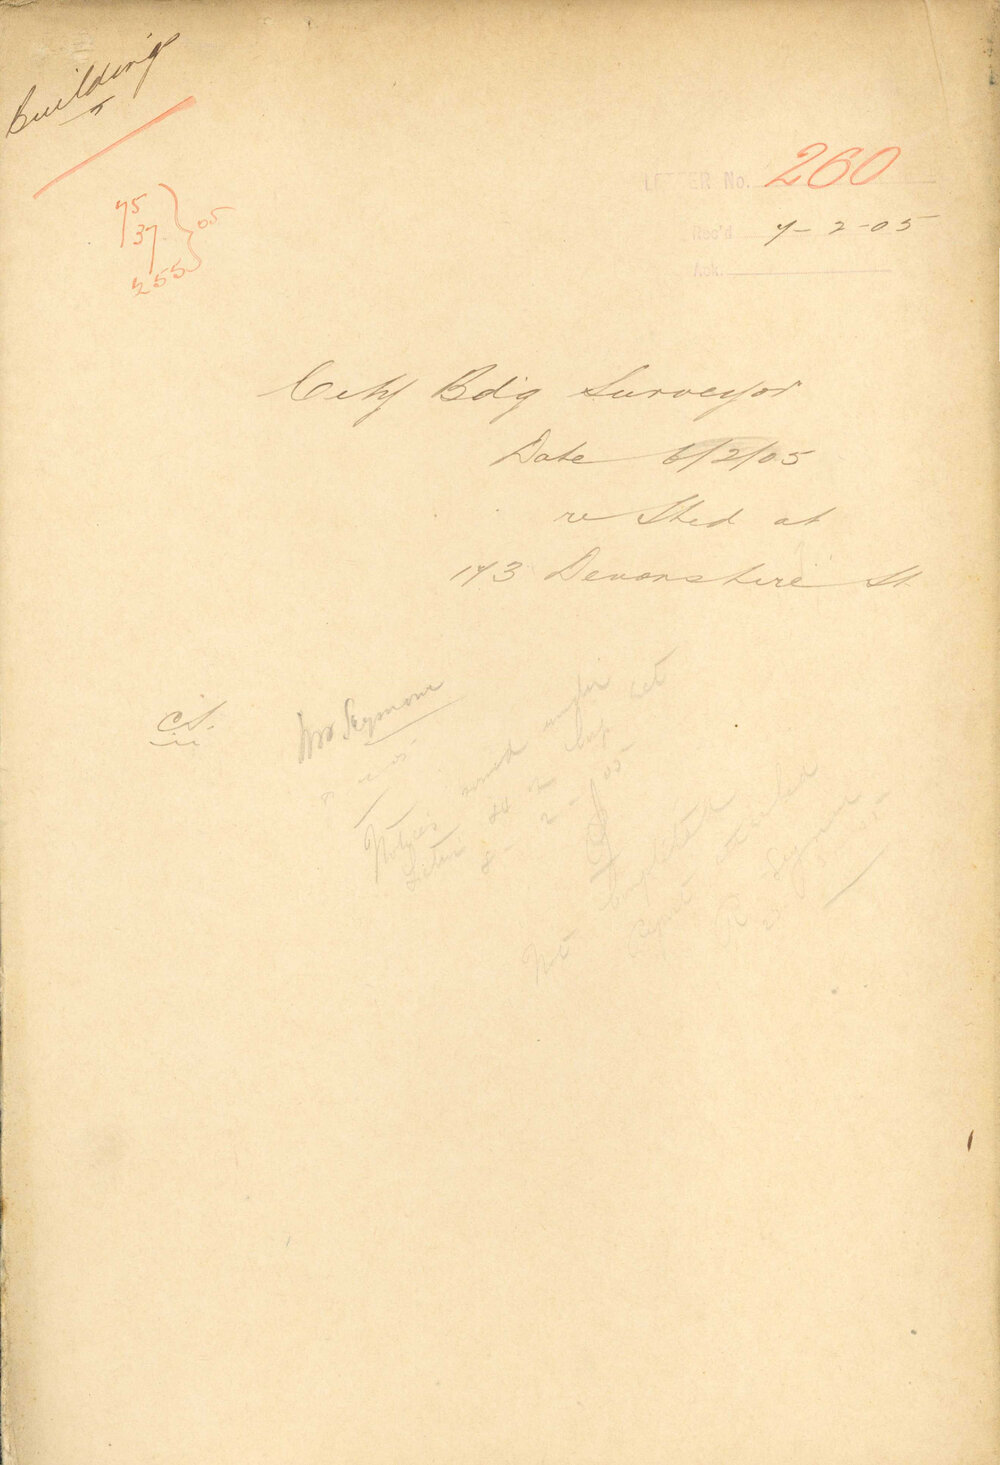 Building
75
37
255
} 05
LETTER No. 260
Rec'd 7-2-05
Ack.
City Bdg Surveyor
Date 6/2/05
re Shed at
173 Devonshire St
C.S.
Mr Seymour
Notices served under
Section 40 of Imp Act
8-2-05
Not Completed
Report attached
R Seymour